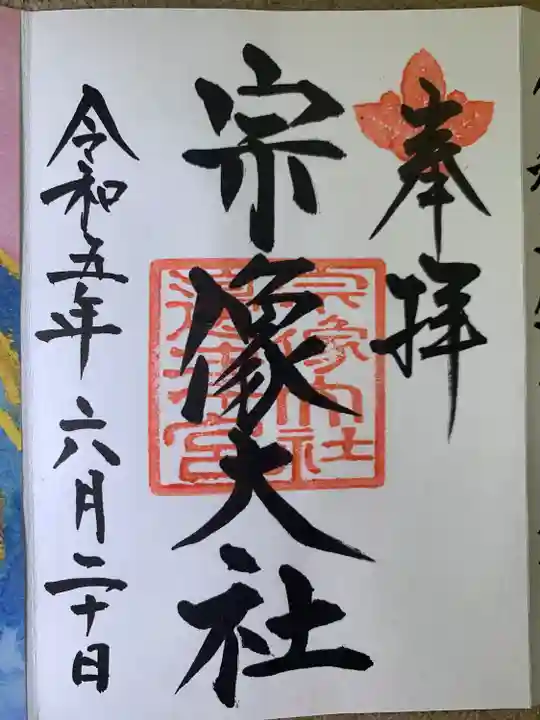 奉拝
宗像大社
令和五年六月二十日
宗像大社